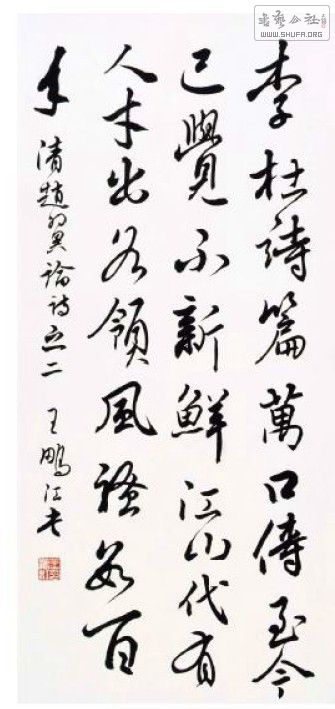 李杜詩篇萬口傳至今
已覺不新鮮江山代有
人才出各領風騷數百
年 清趙翼論詩之二 王鵬江书
公社
WWW.SHUFA.ORG